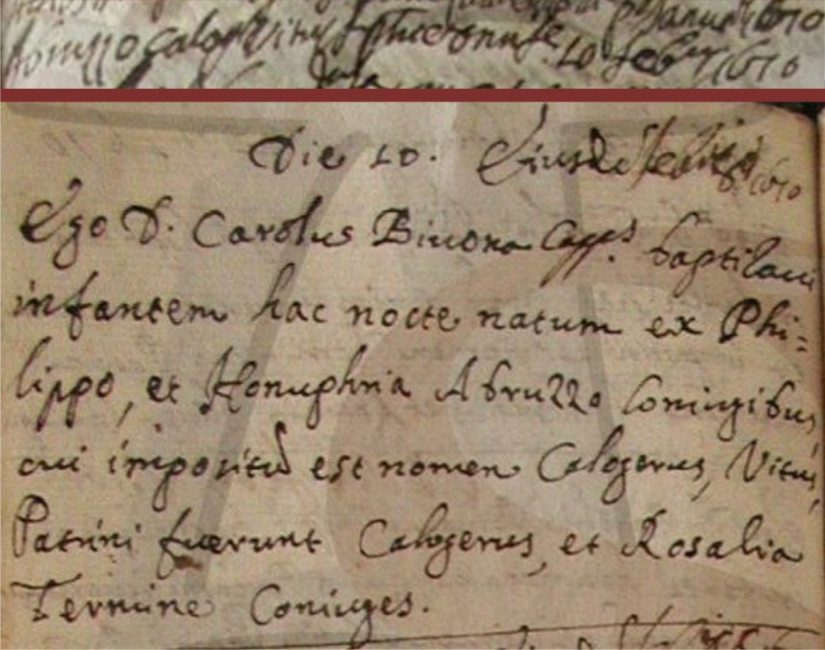 Januar 1670
Abruzzo Calog. Vitus 10 Febr 1670
Die 10. Eiusdē 1670
Ego D. Carolus Biuona Capp.s baptizaui
infantem hac nocte natum ex Phi=
lippo, et Honuphria Abruzzo Coniugibus,
cui impositū est nomen Calogerus, Vitus,
Patrini fuerunt Calogerus, et Rosalia
Termine Coniuges.